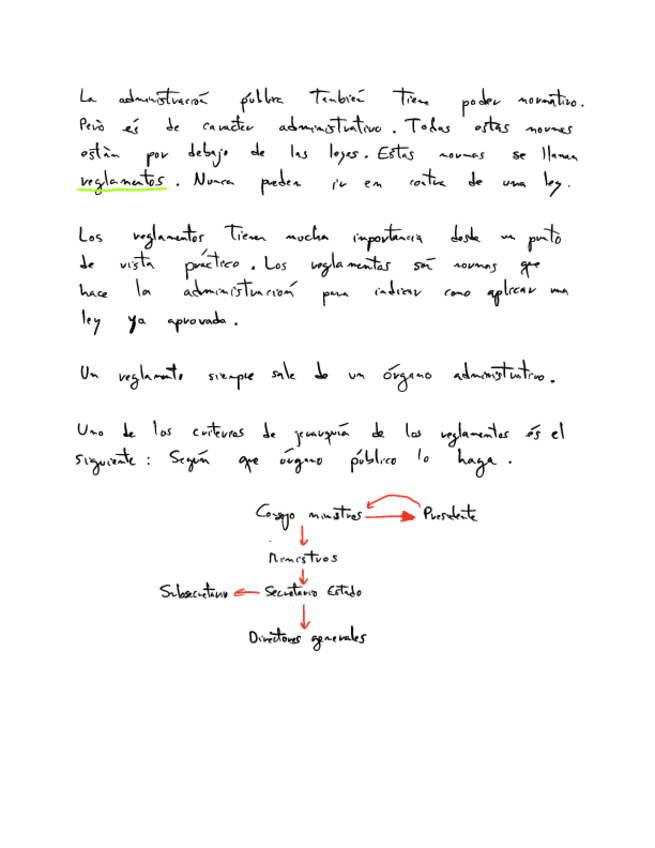 La administración pública también tiene poder normativo.
Però és de caracter administrativo. Todas estas normas
estàn por debajo de las leyes. Estas normas se llaman
reglamentos. Nunca pueden ir em contra de una ley.
Los reglamentos tienen mucha importancia desde un punto
de vista práctico. Los reglamentos son normas que
hace la administración para indicar como aplicar una
ley ya aprovada.
Un reglamento siempre sale de un órgano administrativo.
Uno de los criterios de jerarquía de los reglamentos és el
siguiente: Según que órgano público lo haga.
Consejo ministros Presidente
Ministros
Subsecretario Secretario Estado
Directores generales